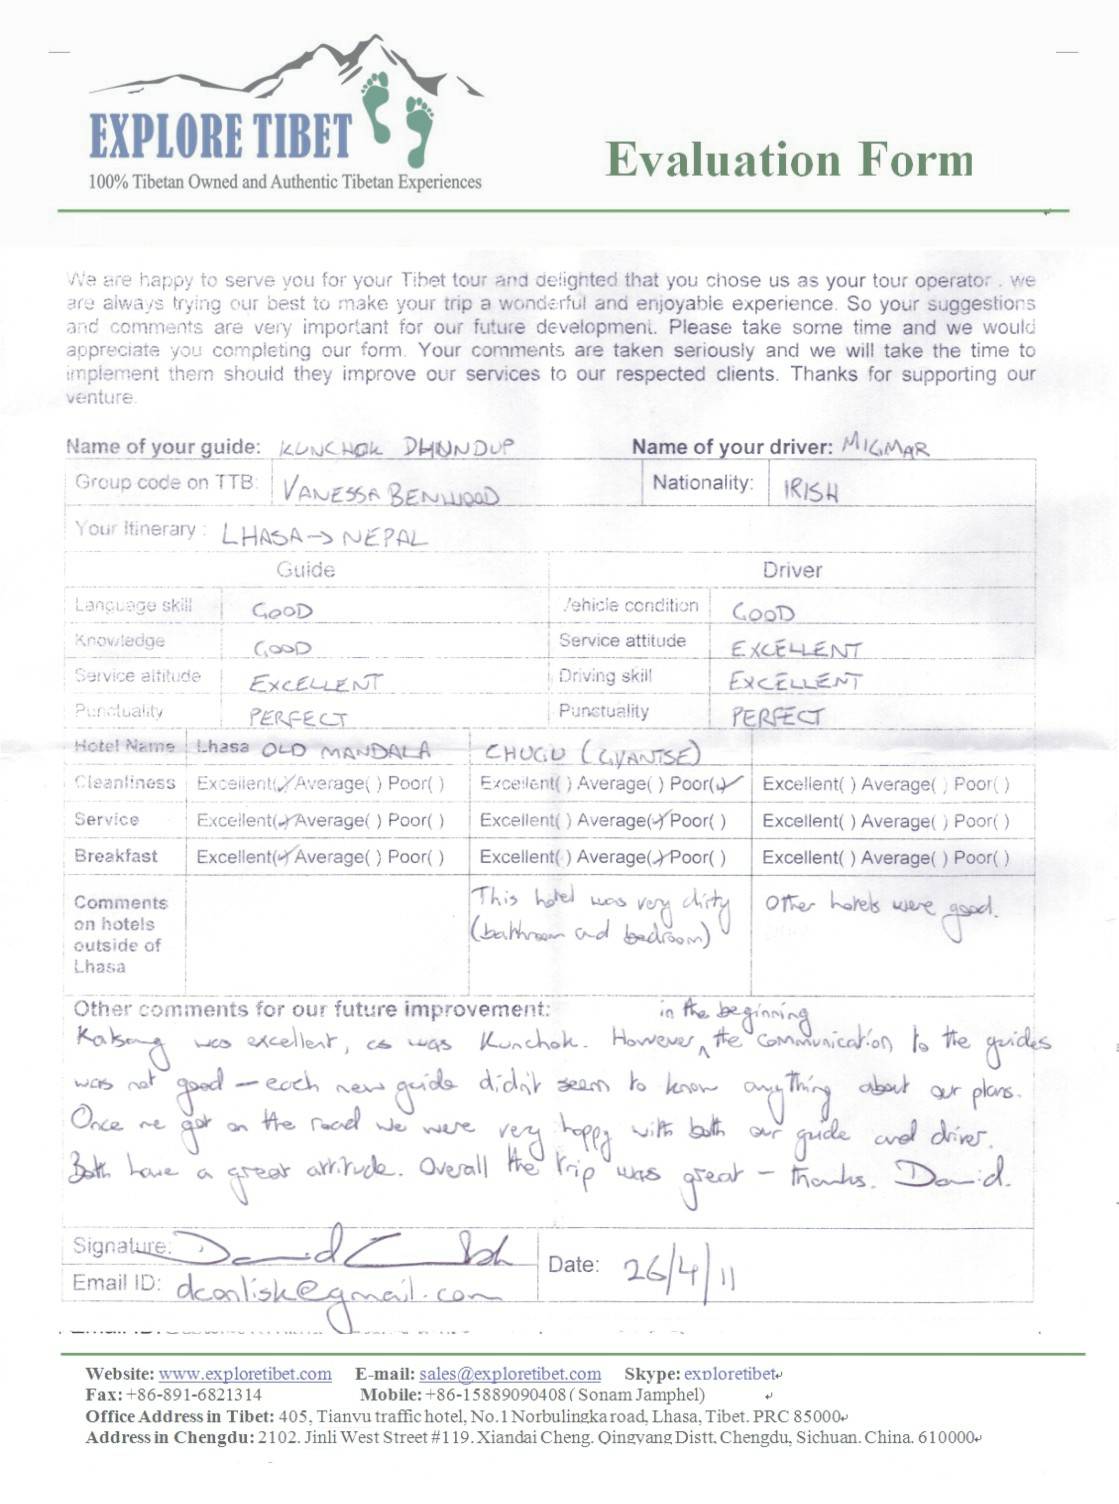 EXPLORE TIBET
100% Tibetan Owned and Authentic Tibetan Experiences
Evaluation Form
We are happy to serve you for your Tibet tour and delighted that you chose us as your tour operator . we
are always trying our best to make your trip a wonderful and enjoyable experience. So your suggestions
and comments are very important for our future development. Please take some time and we would
appreciate you completing our form. Your comments are taken seriously and we will take the time to
implement them should they improve our services to our respected clients. Thanks for supporting our
venture.
Name of your guide: KUNCHOK DHUNDUP Name of your driver: MIGMAR
Group code on TTB: VANESSA BENWOOD Nationality: IRISH
Your Itinerary : LHASA → NEPAL
Guide Driver
Language skill GOOD Vehicle condition GOOD
Knowledge GOOD Service attitude EXCELLENT
Service attitude EXCELLENT Driving skill EXCELLENT
Punctuality PERFECT Punctuality PERFECT
Hotel Name Lhasa OLD MANDALA CHUGU (GYANTSE)
Cleanliness Excellent(✓) Average( ) Poor( ) Excellent( ) Average( ) Poor(✓) Excellent( ) Average( ) Poor( )
Service Excellent(✓) Average( ) Poor( ) Excellent( ) Average(✓) Poor( ) Excellent( ) Average( ) Poor( )
Breakfast Excellent(✓) Average( ) Poor( ) Excellent( ) Average(✓) Poor( ) Excellent( ) Average( ) Poor( )
Comments
on hotels
outside of
Lhasa
This hotel was very dirty
(bathroom and bedroom)
Other hotels were good.
Other comments for our future improvement:
in the beginning
Kalsang was excellent, as was Kunchok. However, ^ the communication to the guides
was not good – each new guide didn't seem to know anything about our plans.
Once we got on the road we were very happy with both our guide and driver.
Both have a great attitude. Overall the trip was great – thanks. David.
Signature: David
Email ID: dconlisk@gmail.com
Date: 26/4/11
Website: www.exploretibet.com E-mail: sales@exploretibet.com Skype: exploretibet
Fax: +86-891-6821314 Mobile: +86-15889090408 ( Sonam Jamphel)
Office Address in Tibet: 405, Tianyu traffic hotel, No.1 Norbulingka road, Lhasa, Tibet. PRC 85000
Address in Chengdu: 2102. Jinli West Street #119. Xiandai Cheng. Qingyang Distt. Chengdu, Sichuan. China. 610000